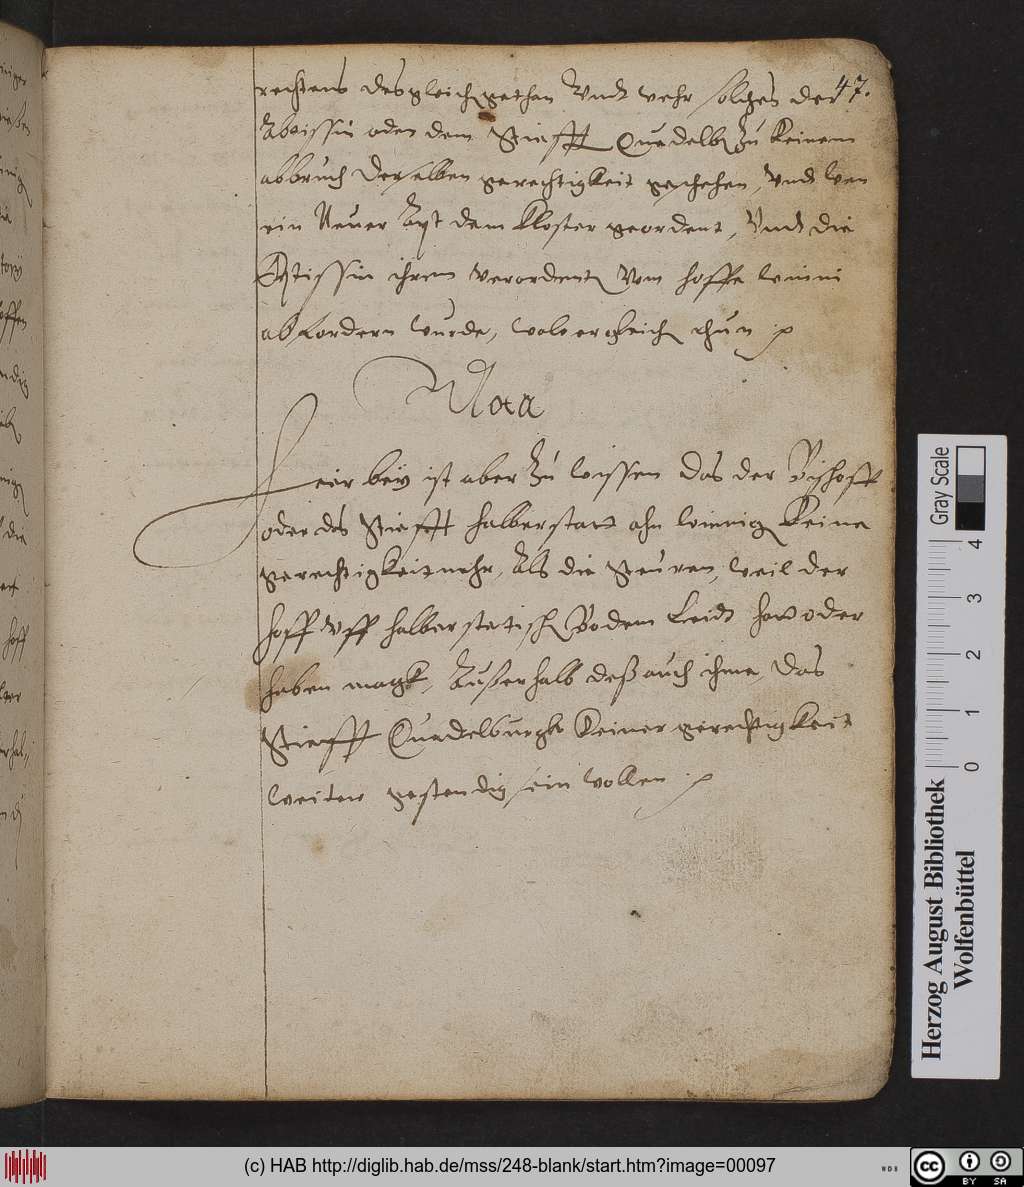 rechtens desgleich gethan Undt wehr solches der 47.
Abbissin oder dem Stiefft Quedelb zu keinem
abbruch derselben gerechtigkeit geschehen, Undt wen
ein Neuer Apt dem Kloster geordent, Undt die
Eptissin ihrem verordenten vom hoffe
abfordern wurde, woler gleich thun
Nota
Heir beÿ ist aber zu wissen das der Bischoff
oder das Stiefft halberstatt ahn keine
gerechtigkeit mehr, Als die Steuren, weil der
hoff Uff halberstetisch Bodem Leidt hatt oder
haben magk, Außerhalb deß auch ihme, das
Stiefft Quedelburgk keiner gerechtigkeit
weiter gestendig sein wollen
hoff
die
Gray Scale
4
3
2
1
0
Herzog August Bibliothek
Wolfenbüttel
(c) HAB http://diglib.hab.de/mss/248-blank/start.htm?image=00097
WDB
cc BY SA